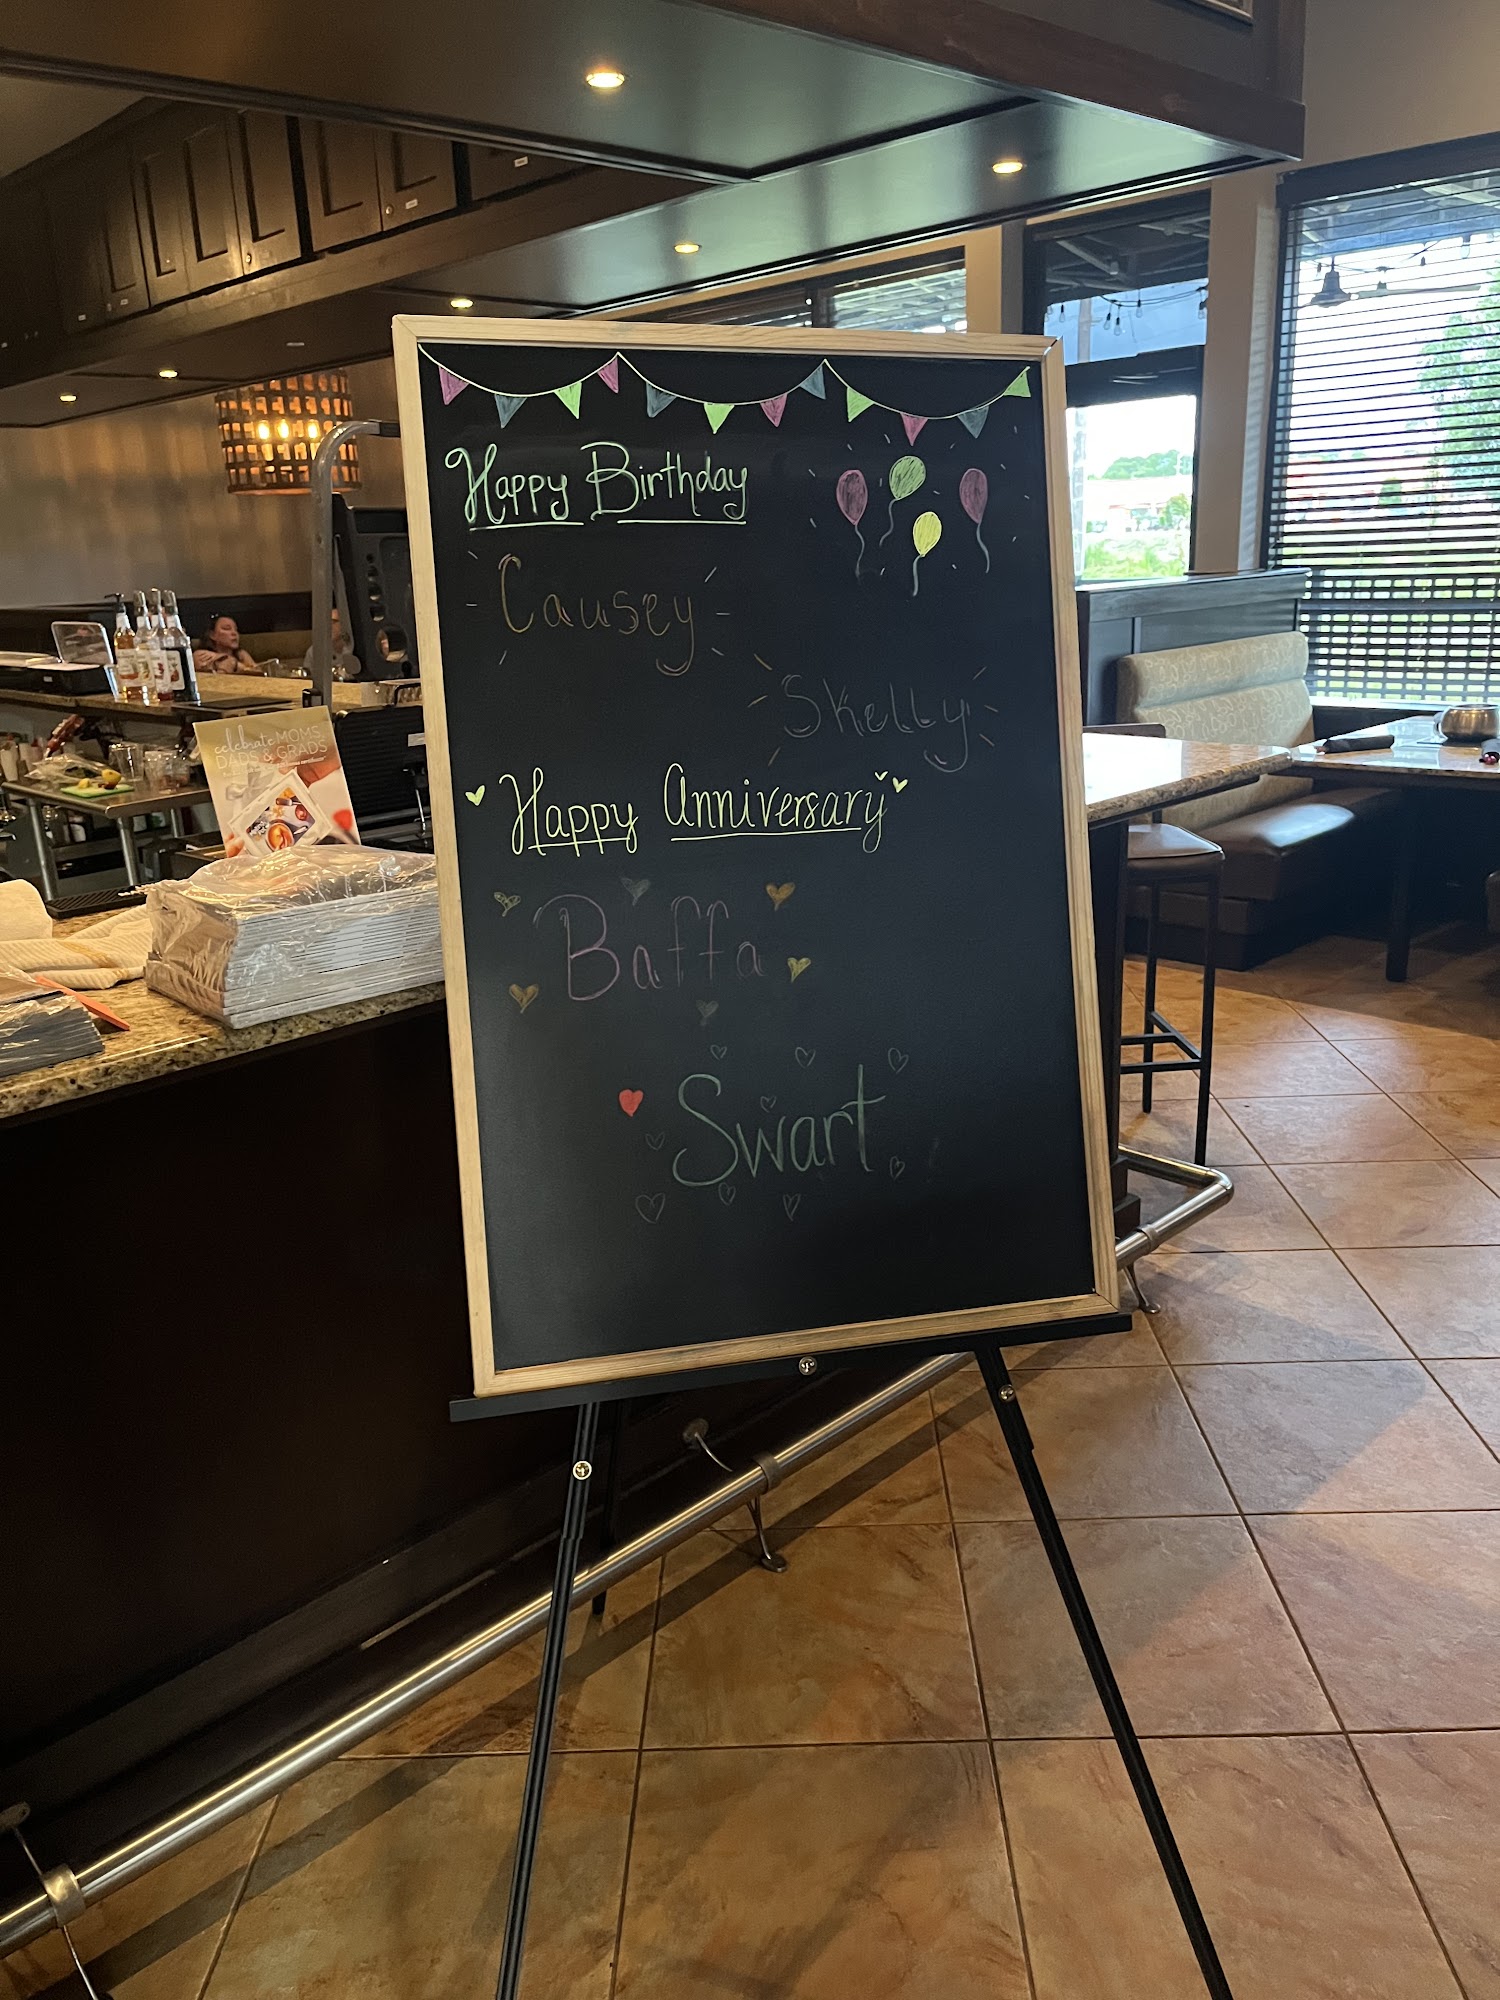 Happy Birthday
Causey
Skelly
Happy Anniversary
Baffa
Swart
celebrate MOMS
DADS & GRADS